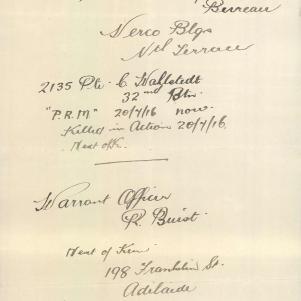 Bureau
Verco Blgs
Nth Terrace
2135 Pte. C. Wahlstedt
32nd Btn.
"P.R.M" 20/7/16 now.
Killed in Action 20/7/16.
Next of K.
Warrant Officer
R. Buist.
Next of Kin
198 Franklin St.
Adelaide